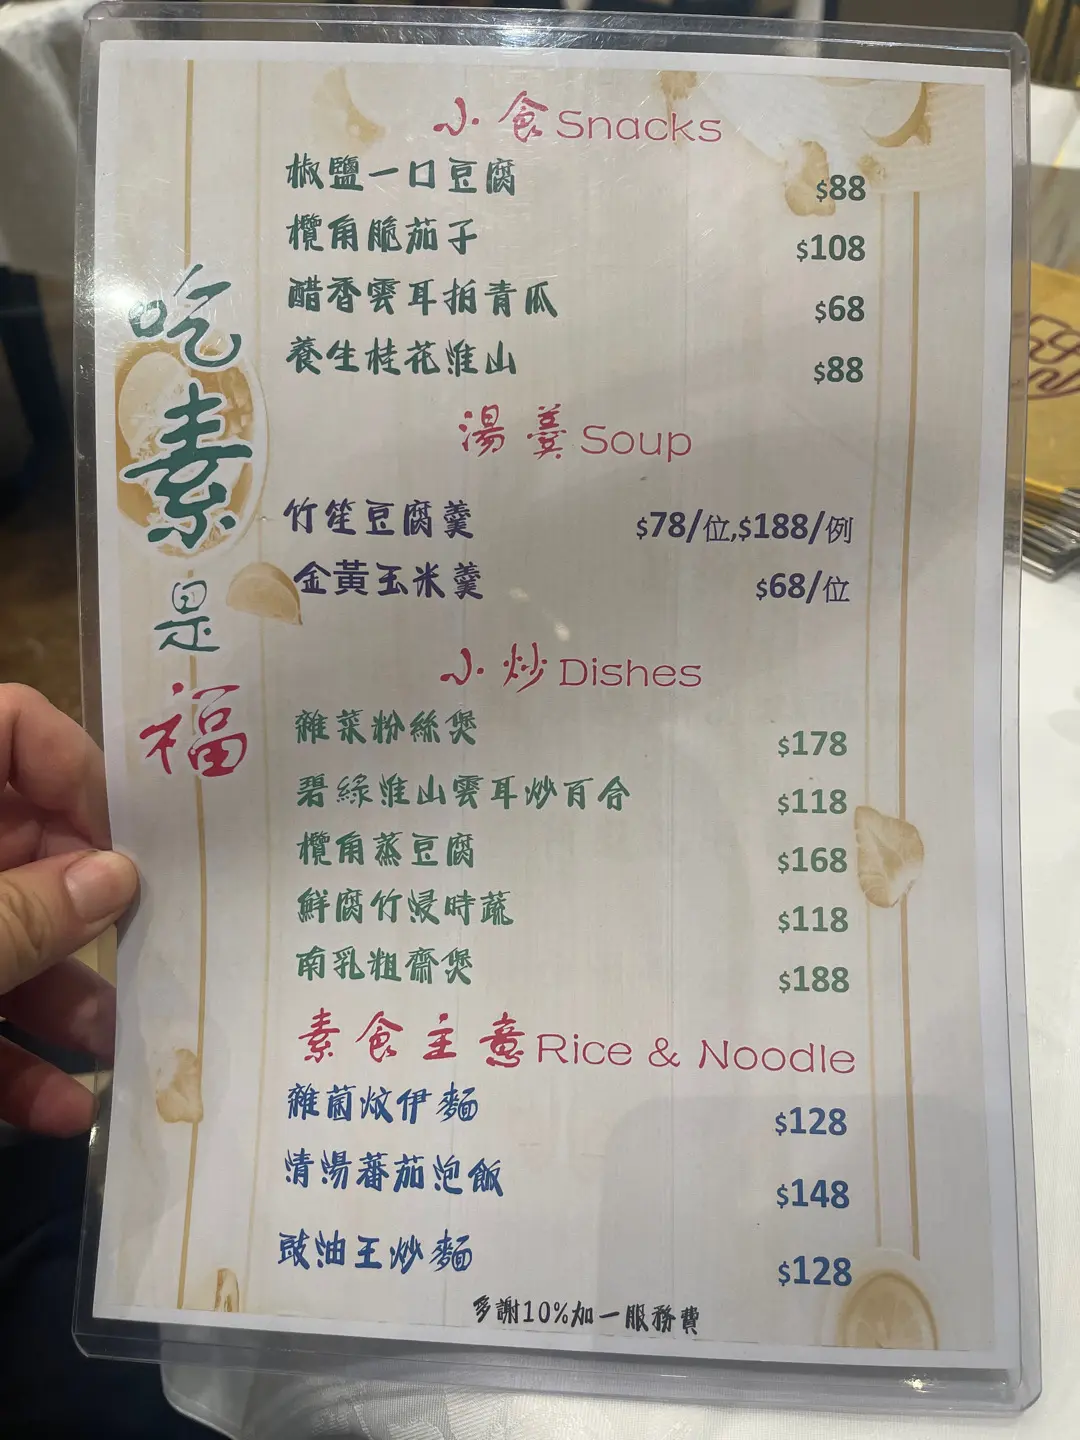 吃素是福
小食 Snacks
椒鹽一口豆腐 $88
欖角脆茄子 $108
醋香雲耳拍青瓜 $68
養生桂花淮山 $88
湯羹 Soup
竹笙豆腐羹 $78/位,$188/例
金黃玉米羹 $68/位
小炒 Dishes
雜菜粉絲煲 $178
碧綠淮山雲耳炒百合 $118
欖角蒸豆腐 $168
鮮腐竹浸時蔬 $118
南乳粗齋煲 $188
素食主意 Rice & Noodle
雜菌炆伊麵 $128
清湯蕃茄泡飯 $148
豉油王炒麵 $128
多謝10%加一服務費